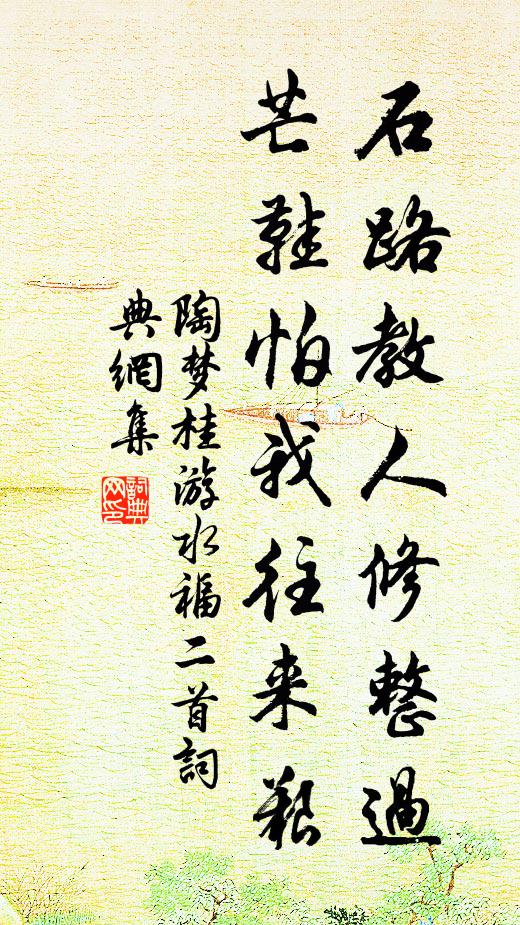 石路教人修整過
芒鞋怕我往来艱
陶梦桂游水福二首詞
典網集
詞典
网印